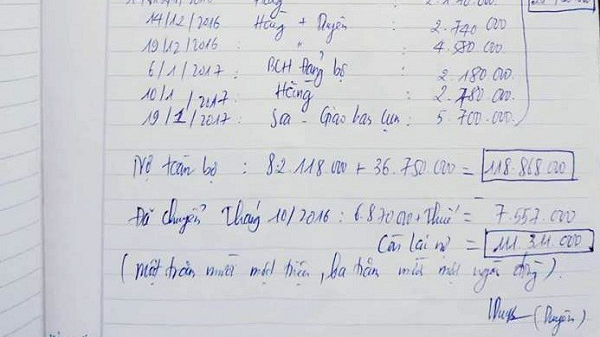 14/12/2016 Hồng + Duyên : 2.740.000
19/12/2016 " : 4.580.000
6/1/2017 : BCH Đảng bộ : 2.180.000
10/1/2017 : Hồng : 2.780.000
19/1/2017 : 5.700.000
Nợ toàn bộ : 82.118.000 + 36.750.000 = 118.868.000
Đã chuyển Tháng 10/2016 : 6.870.000 + Thuế = 7.557.000
Còn lại nợ = 111.311.000
(Một trăm mười một triệu, ba trăm mười một ngàn đồng).
(Duyên)